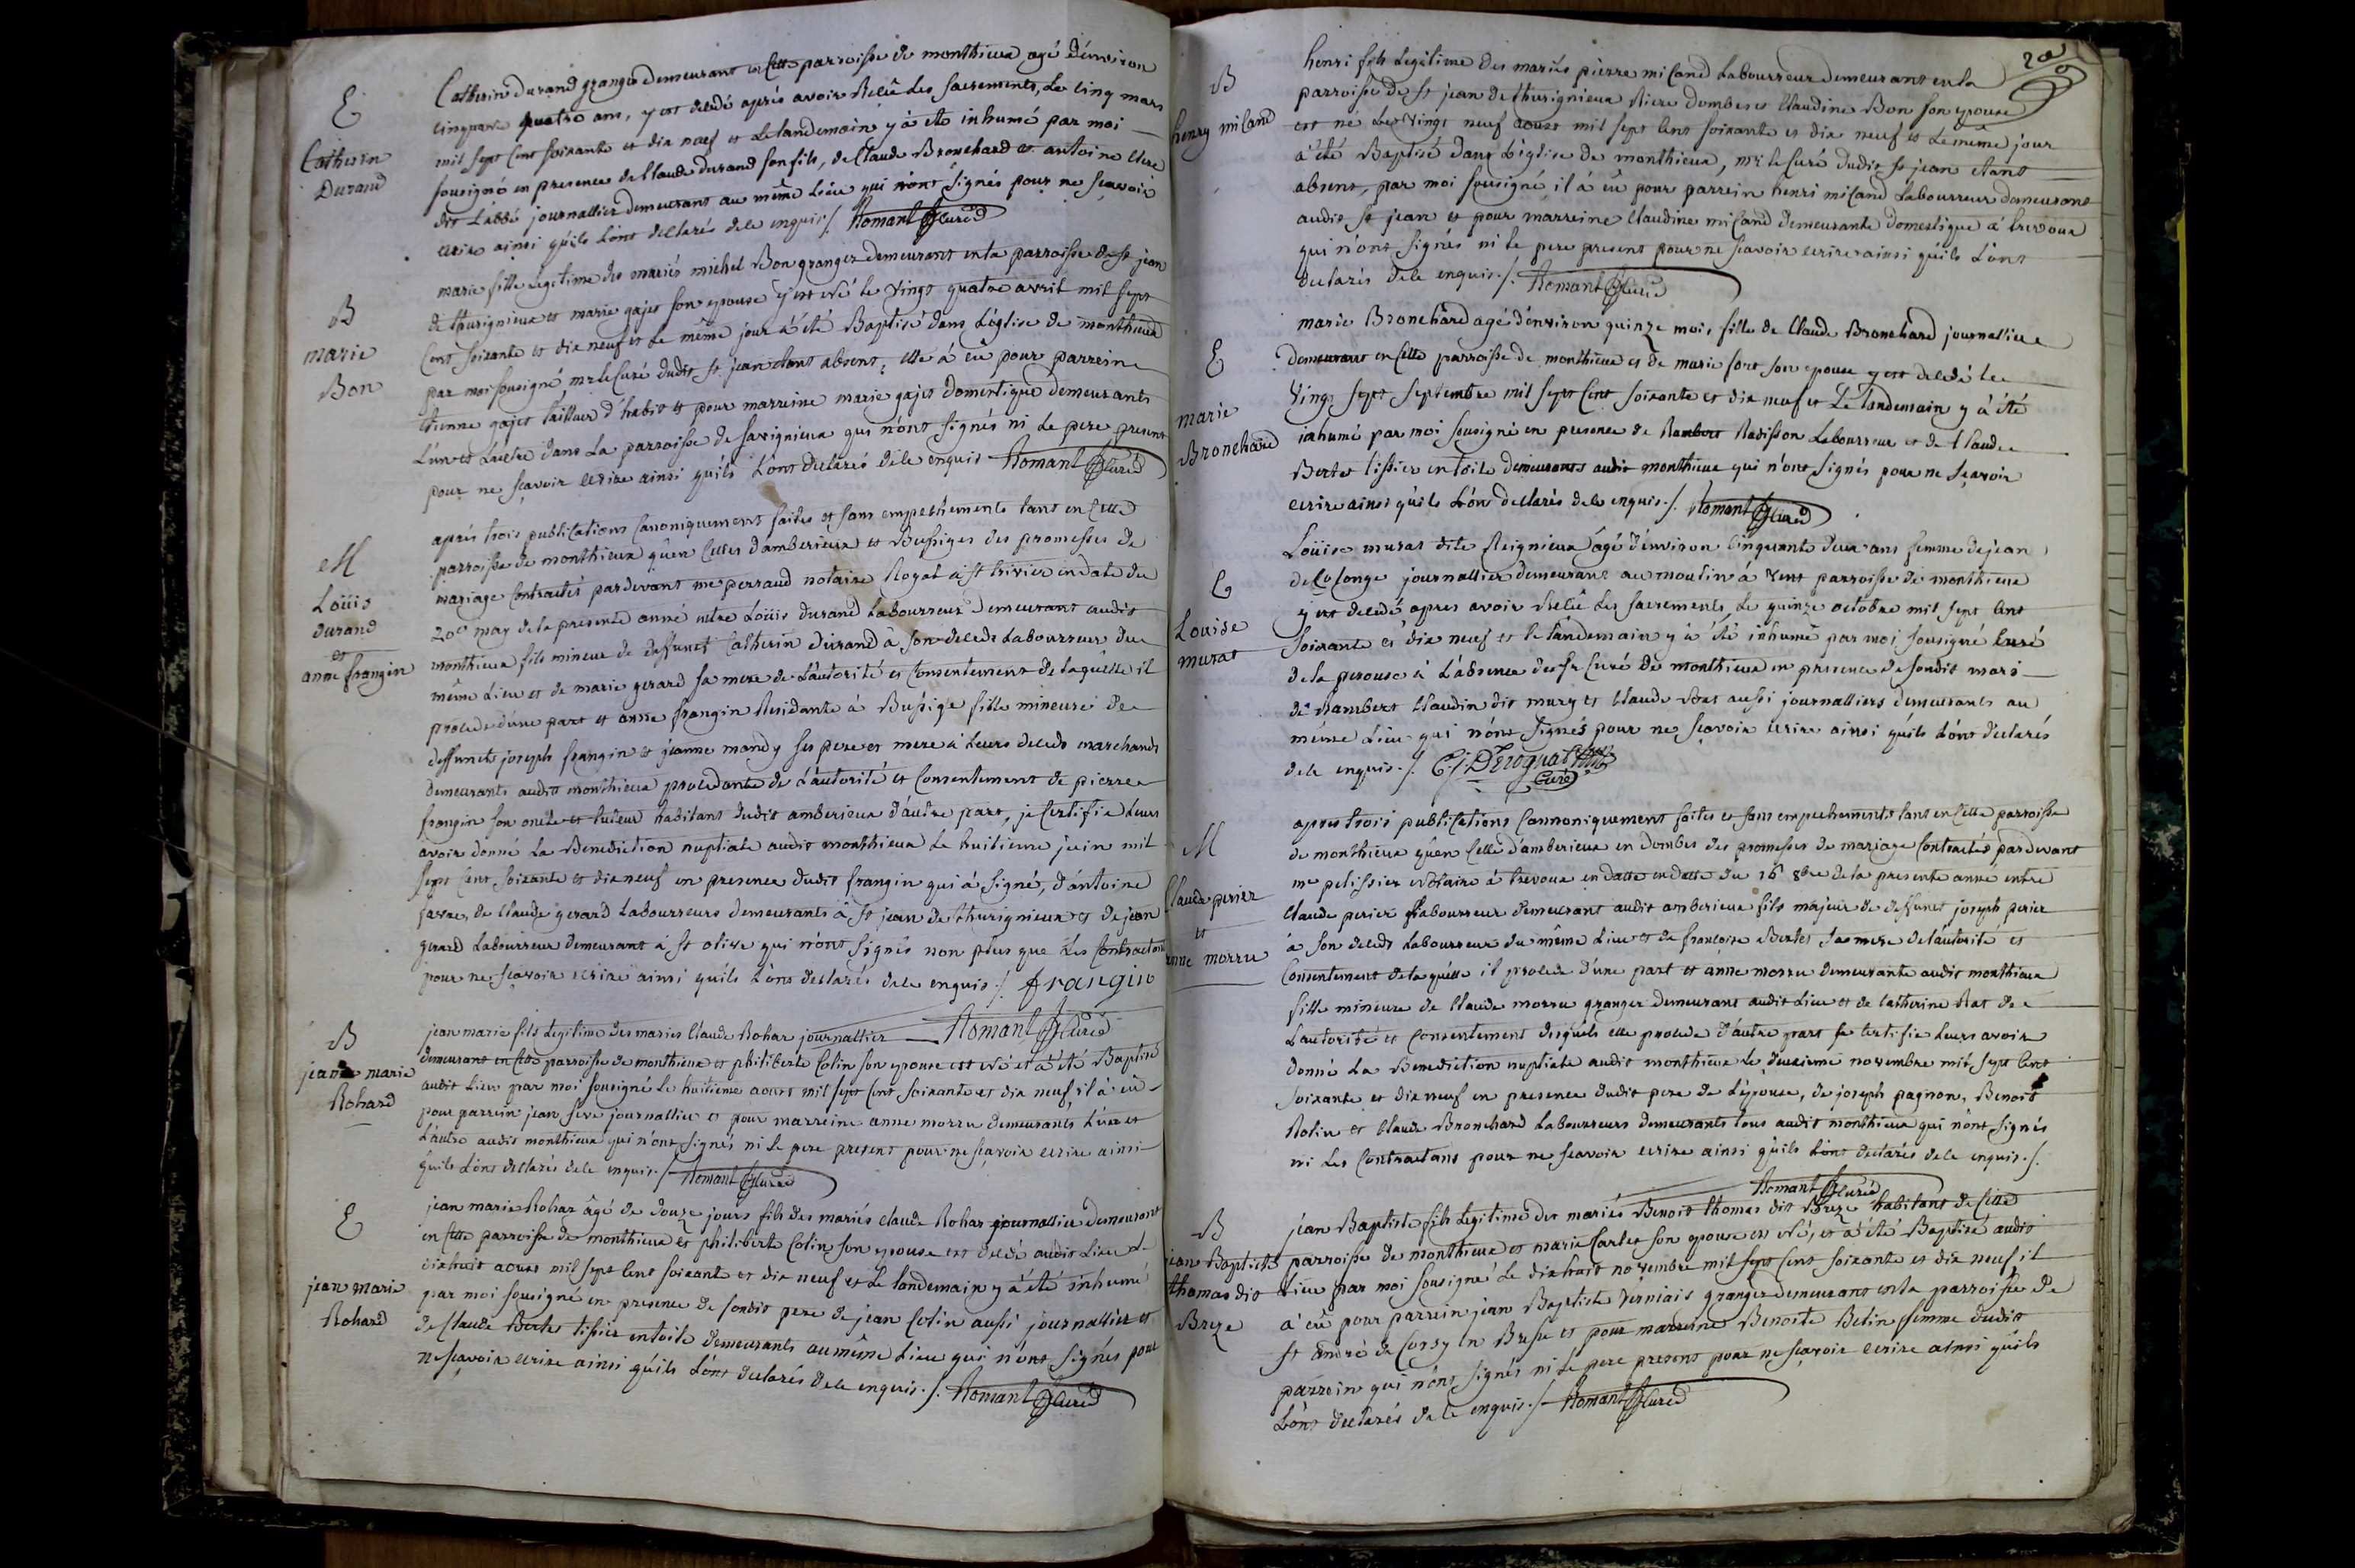 E
Catherin
Durand
Catherin Durand granger demeurant en cette parroisse de monthieux agé d'environ
cinquante quatre ans, y est decedé aprés avoir Reçû les sacrements, Le cinq mars
mil sept cent soixante et dix neuf et Le landemain y à été inhumé par moi
sousigné en presence de Claude durand son fils, de Claude Bronchard et antoine
dit L'abbé journallier demeurant au même Lieu qui n'ont signés pour ne sçavoir
ecrire ainsi qu'ils L'ont declarés de ce enquis ./. Romant Curé
B
marie
Bon
marie fille Legitime des mariés michel Bon granger demeurant en la parroisse de st jean
de thurignieux et marie gajet son epouse y est né le vingt quatre avril mil sept
cent soixante et dix neuf et Le même jour à été Baptisé dans L'église de monthieux
par moi sousigné, mr le Curé dudit st jean etant absent, elle à eû pour parrein
etienne gajet tailleur d'habit et pour marreine marie gajet domestique demeurants
L'un et L'autre dans La parroisse de savignieux qui n'ont signés ni Le pere present
pour ne sçavoir ecrire ainsi qu'ils L'ont declarés de ce enquis Romant Curé
M
Loüis
durand
et
anne frangin
aprés trois publications Canoniquement faites et sans empechements tant en Cette
parroisse de monthieux qu'en Celles d'amberieux et Bussiges des promesses de
mariage Contractés pardevant me perraud notaire Royal à st trivier en date du
20e may de la presente anné entre Loüis durand Labourreur demeurant audit
monthieux fils mineur de deffunct Catherin durand à son decede Labourreur du
même Lieu et de marie gerard sa mere de L'autorité et Consentement de Laquelle il
procede d'une part et anne frangin Residante à Bussige fille mineure de
deffuncts joseph frangin et jeanne mandy ses pere et mere à Leurs decede marchands
demeurants audit monthieux procedante de L'autorité et Consentement de pierre
frangin son oncle et tuteur habitant dudit amberieux d'autre part, je Certifie Leurs
avoir donné La Benediction nuptiale audit monthieux Le huitieme juin mil
sept Cent soixante et dix neuf en presence dudit frangin qui à signé, d'antoine
favre, de Claude gerard Labourreurs demeurants à st jean de thurignieux et de jean
gerard Labourreur demeurant à st olive qui n'ont signés non plus que Les Contractants
pour ne sçavoir ecrire ainsi qu'ils L'ont declarés de ce enquis ./. frangin
Romant Curé
B
jean marie
Rohard
jean marie fils Legitime des mariés Claude Rohar journallier
demeurant en Cette parroisse de monthieux et philiberte Colin son epouse est né et à été Baptisé
audit Lieu par moi sousigné Le huitieme aoust mil sept Cent soixante et dix neuf, il à eû
pour parrein jean seve journallier et pour marreine anne morru demeurants L'un et
L'autre audit monthieux qui n'ont signés ni Le pere present pour ne sçavoir ecrire ainsi
qu'ils L'ont declarés de ce enquis ./. Romant Curé
E
jean marie
Rohard
jean marie Rohar âgé de douze jours fils des mariés Claude Rohar journallier demeurant
en Cette parroisse de monthieux et philiberte Colin son epouse est decedé audit Lieu Le
dixhuit aoust mil sept Cent soixante et dix neuf et Le landemain y à été inhumé
par moi sousigné en presence de sondit pere de jean Colin aussi journallier et
de Claude Bertet tissier en toile demeurants au même Lieu qui n'ont signés pour
ne sçavoir ecrire ainsi qu'ils L'ont declarés de ce enquis ./. Romant Curé
B
henry miland
henri fils Legitime des mariés pierre miland Labourreur demeurant en La
parroisse de st jean de thurignieux Riere dombes et Claudine Bon son epouse
est né Le vingt neuf aoust mil sept Cent soixante et dix neuf et Le même jour
à été Baptisé dans L'église de monthieux, mr le Curé dudit st jean etant
absent, par moi sousigné il à eû pour parrein henri miland Labourreur demeurant
audit st jean et pour marreine Claudine miland demeurante domestique à trevoux
qui n'ont signés ni le pere present pour ne sçavoir ecrire ainsi qu'ils L'ont
declarés de ce enquis ./. Romant Curé
E
marie
Bronchard
marie Bronchard agé d'environ quinze moi, fille de Claude Bronchard journallier
demeurant en Cette parroisse de monthieux et de marie fort son epouse y est decedé Le
vingt sept septembre mil sept Cent soixante et dix neuf et Le landemain y à été
inhumé par moi sousigné en presence de Rambert Radisson Labourreur et de Claude
Bertet tissier en toile demeurants audit monthieux qui n'ont signés pour ne sçavoir
ecrire ainsi qu'ils L'ont declarés de ce enquis ./. Romant Curé
E
Louise
murat
Loüise murat dite Reignieux âgé d'environ Cinquante deux ans femme de jean
de Colonge journallier demeurant au moulin à vent parroisse de monthieux
y est decedé apres avoir Reçûe Les sacrements, Le quinze octobre mil sept Cent
soixante et dix neuf et le landemain y à été inhumé par moi sousigné Curé
de la perouse à L'absence du sr Curé de monthieux en presence de sondit mari
de Rambert Claudin dit mury et Claude aussi journalliers demeurants au
même Lieu qui n'ont signés pour ne sçavoir ecrire ainsi qu'ils L'ont declarés
de ce enquis ./. Curé
M
Claude perier
et
anne morru
apres trois publications Cannoniquement faites et sans empechements tant en Cette parroisse
de monthieux qu'en Celle d'amberieux en dombes des promesses de mariage Contractés pardevant
me pelissier Notaire à trevoux en datte en datte du 16 8bre de la presente anne entre
Claude perier Labourreur demeurant audit amberieux fils majeur de deffunct joseph perier
à son decede Labourreur du même Lieu et de francoise Bertet sa mere de L'autorité et
Consentement de laquelle il procede d'une part et anne morru demeurante audit monthieux
fille mineure de Claude morru granger demeurant audit Lieu et de Catherine Rat de
L'autorité et Consentement desquels elle procede d'autre part je Certifie Leurs avoir
donné La Benediction nuptiale audit monthieux Le deuxieme novembre mil sept Cent
soixante et dix neuf en presence dudit pere de L'épouse, de joseph pagnon, Benoit
Rolin et Claude Bronchard Labourreurs demeurants tous audit monthieux qui n'ont signés
ni Les Contractans pour ne sçavoir ecrire ainsi qu'ils L'ont declarés de ce enquis ./.
Romant Curé
B
jean Baptiste
thomas dit
Breze
jean Baptiste fils Legitime des mariés Benoit thomas dit Breze habitans de Cette
parroisse de monthieux et marie Carlet son epouse est né, et à été Baptisé audit
Lieu par moi sousigné Le dixhuit novembre mil sept Cent soixante et dix neuf, il
à eû pour parrein jean Baptiste Verniais granger demeurant en la parroisse de
st andré de Corsy en Bresse et pour marreine Benoite Belin femme dudit
parrein qui n'ont signés ni Le pere present pour ne sçavoir ecrire ainsi qu'ils
L'ont declarés de ce enquis ./. Romant Curé